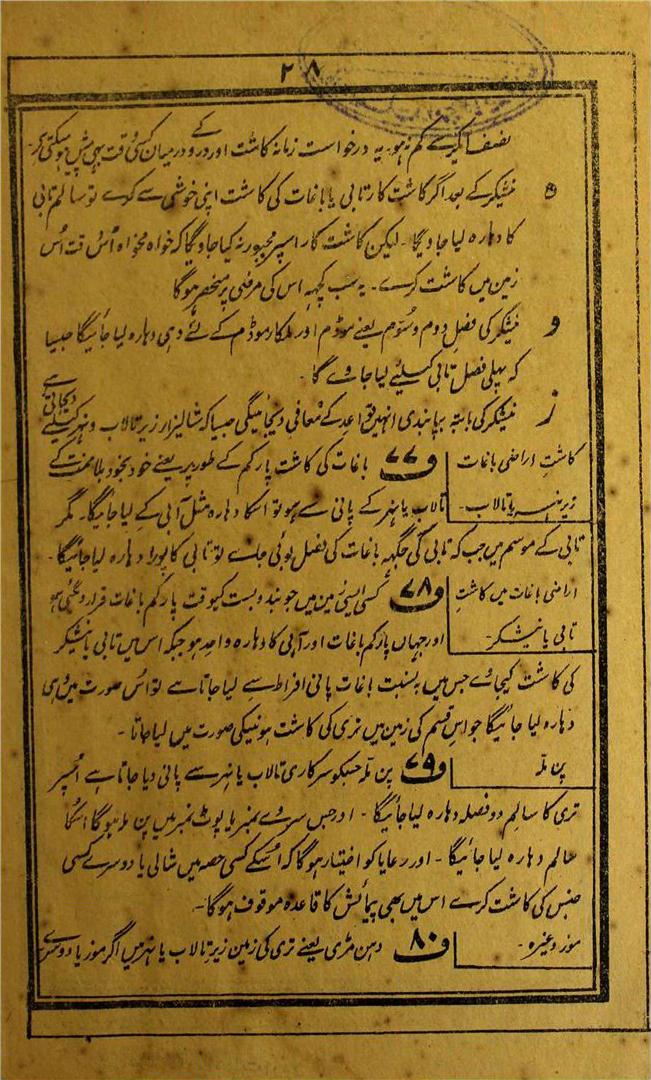 ۲۸
نصف ایکر سے کم نہ ہو۔ یہ درخواست زمانہ کاشت اور درو کے درمیان کسی وقت بھی پیش ہو سکتی ہے۔
ہ نیشکر کے بعد اگر کاشت کار تابی یا باغات کی کاشت اپنی خوشی سے کرے تو سالم تابی
کا دہارہ لیا جاویگا۔ لیکن کاشت کار اسپر مجبور نہ کیا جاویگا کہ خواہ مخواہ اُس وقت اُس
زمین میں کاشت کرے۔ یہ سب کچہہ اس کی مرضی پر منحصر ہوگا
و نیشکر کی فصل دوم و سوم یعنے موڈم اور ملکار موڈم کے لئے وہی دہارہ لیا جائیگا جیسا
کہ پہلی فصل تابی کیلئے لیا جاوے گا۔
ز نیشکر کی بابتہ بپابندی انہیں قواعد کے معافی دیجائیگی جیسا کہ شالیزار زیر تالاب و نہر کیلئے دیجاتی ہے
کاشت اراضی باغات | ف۷۷ باغات کی کاشت پارکم کے طور پر یعنے خود بخود بلا محنت کے
زیر نہر یا تالاب۔ | تالاب یا نہر کے پانی سے ہو تو اسکا دہارہ مثل آبی کے لیا جائیگا۔ مگر
تابی کے موسم میں جب کہ تابی کی جگہہ باغات کی فصل بوئی جائے تو تابی کا پورا دہارہ لیا جائیگا۔
اراضی باغات میں کاشت | ف۷۸ کسی ایسی زمین میں جو بندوبست کیوقت پارکم باغات قرار دیگئی ہو
تابی یا نیشکر۔ | اور جہاں پارکم باغات اور آبی کا دہارہ واحد ہو جبکہ اس میں تابی یا نیشکر
کی کاشت کیجاوے جس میں بہ نسبت باغات پانی افراط سے لیا جاتا ہے تو اُس صورت میں وہی
دہارہ لیا جائیگا جو اس قسم کی زمین میں تری کی کاشت ہونیکی صورت میں لیا جاتا۔
پن ملہ | ف۷۹ پن ملہ جسکو سرکاری تالاب یا نہر سے پانی دیا جاتا ہے اُسپر
تری کا سالم دو فصلہ دہارہ لیا جائیگا۔ اور جس سروے نمبر یا پوٹ نمبر میں پن ملہ ہوگا اسکا
سالم دہارہ لیا جائیگا۔ اور رعایا کو اختیار ہوگا کہ اُسکے کسی حصہ میں شالی یا دوسرے کسی
جنس کی کاشت کرے اس میں بھی پیمائش کا قاعدہ موقوف ہوگا۔
موز وغیرہ۔ | ف۸۰ دہن مڑی یعنے تری کی زمین زیر تالاب یا نہر میں اگر موز یا دوسرے